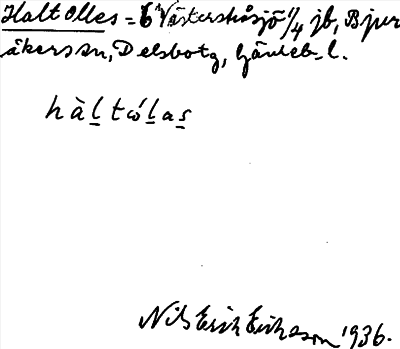 Halt Olles = 6 Västerstråsjö 1/4 jb, Bjur
åkers sn, Delsbo tg, Gävleb. l.
hàl̲tώl̲as̲
Nils Erik Eriksson 1936.